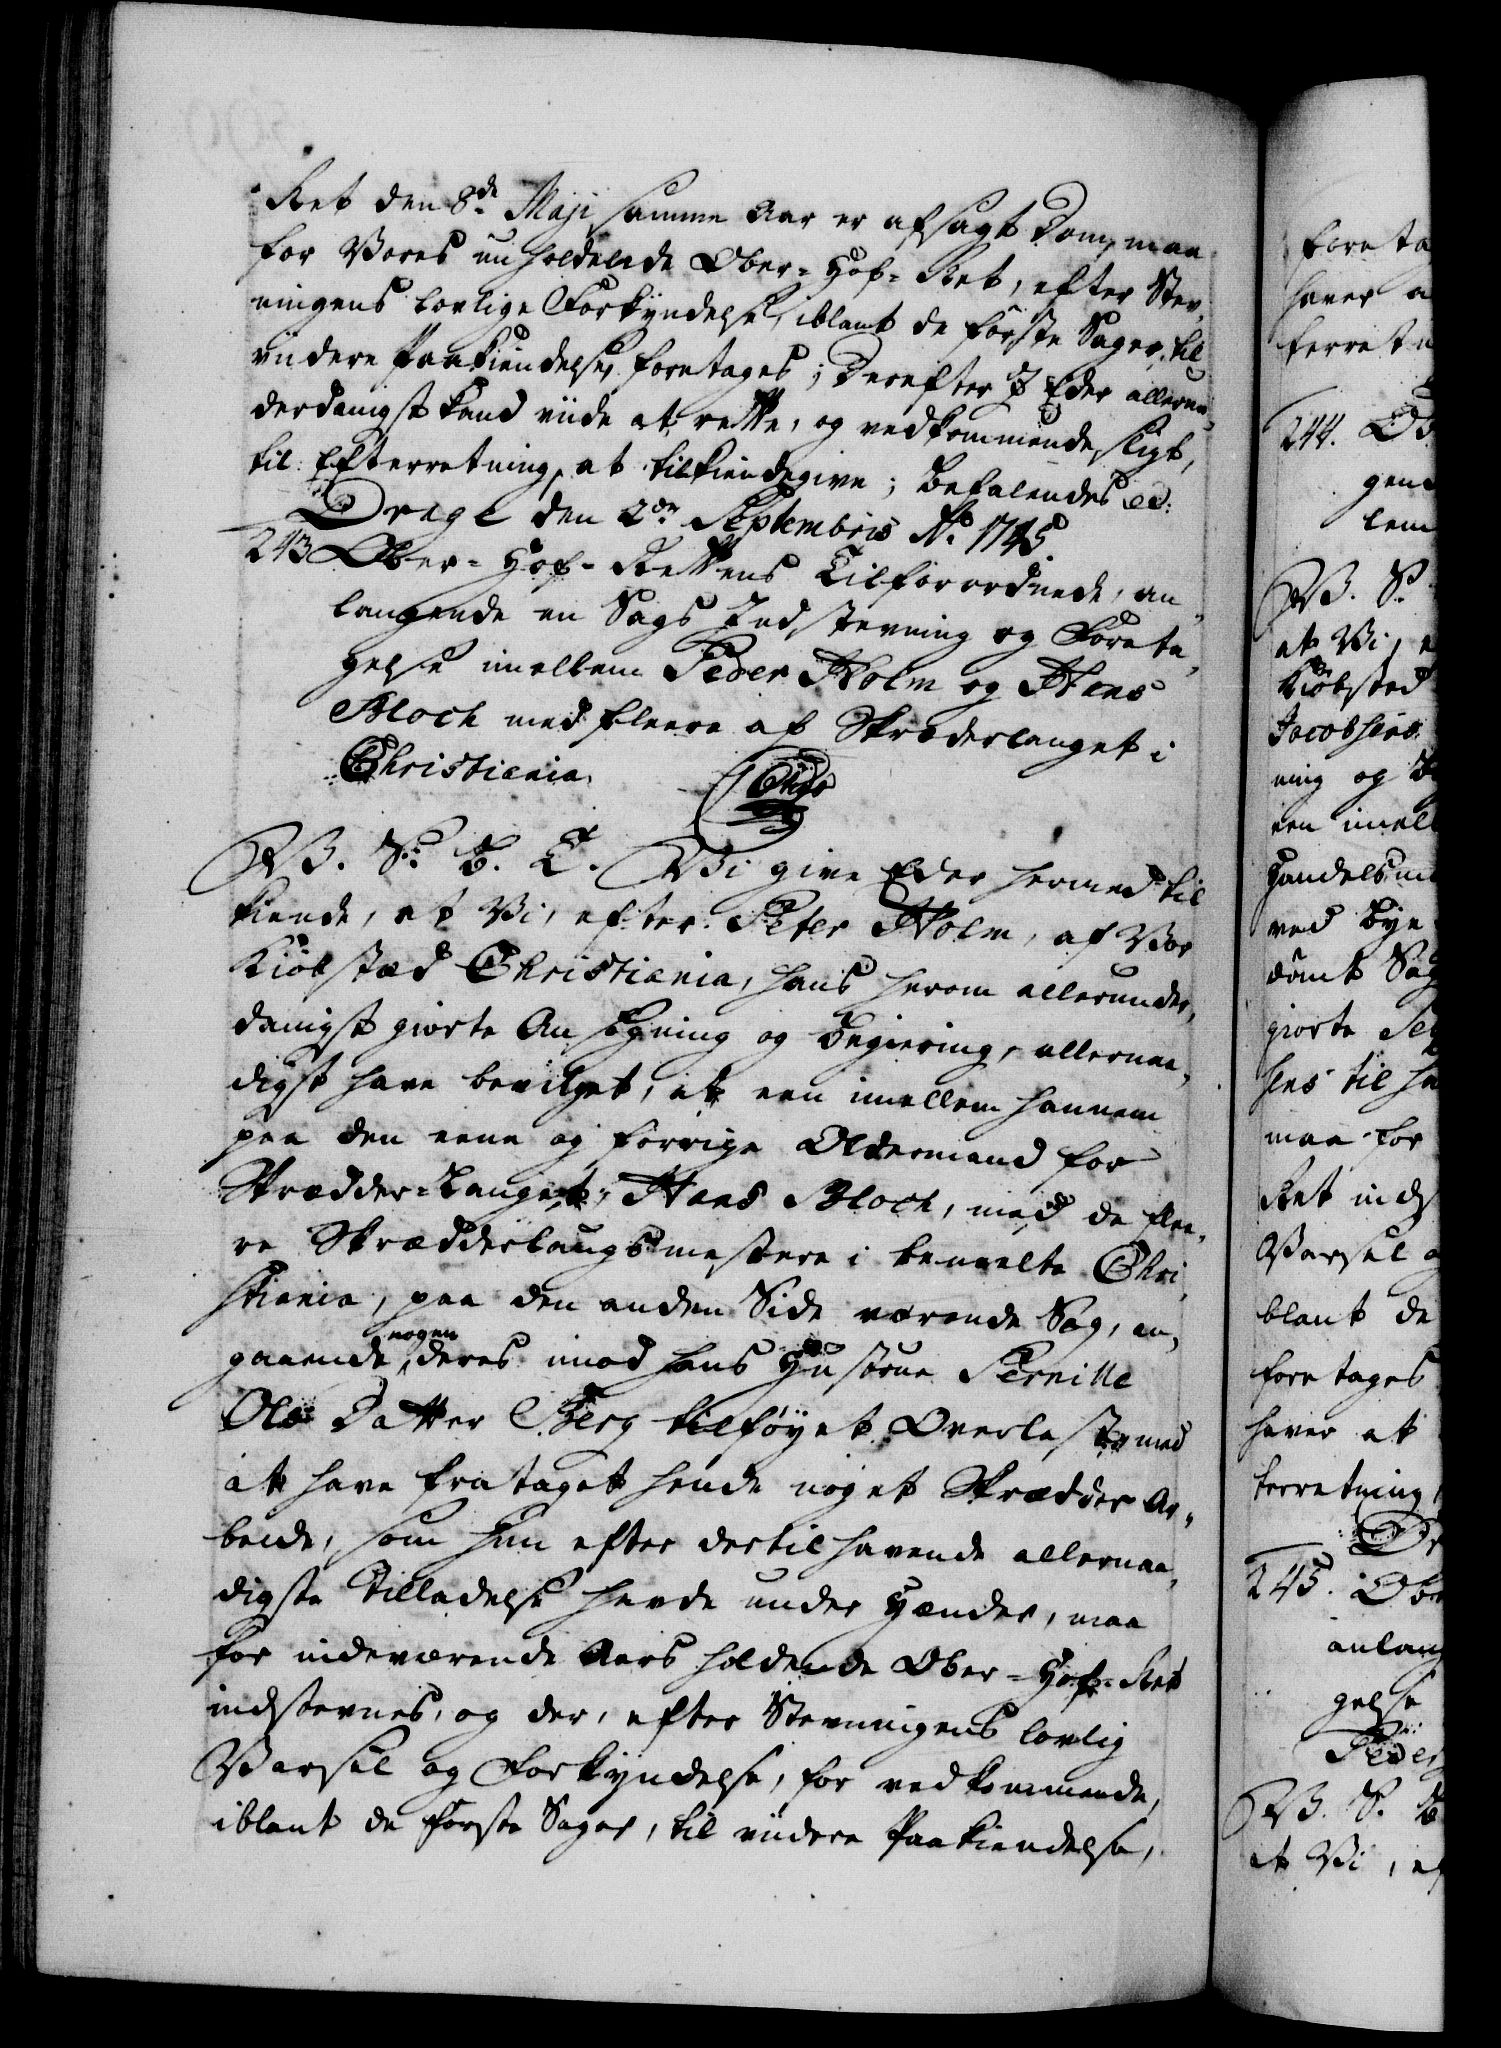 Ret den 8de Maji samme Aar er afsagt Dom, maa
for Vores nu holdende Ober-Hof-Ret, efter Stev,
ningens lovlige Forkyndelse, iblant de første Sager, til
viidere Paakiendelse, foretages; Derefter I Eder allerun,
derdanigst kand viide at rette, og vedkommende sligt,
til Efterretning, at tilkiendegive; Befalendes etc:
Drage den 2den Septembris Ao. 1745.
243 Ober-Hof-Rettens Tilforordnede, an,
langende en Sags Indstevning og Foreta,
gelse imellem Peder Holm og Hans
Bloch med fleere af Skræderlauget i
Christiania.
V. S. B. T. Vi give Eder hermed til
kiende, at Vi, efter Peter Holm, af Vor
Kiøbstæd Christiania, hans herom allerunder,
danigst giorte Ansøgning og Begiering, allernaa,
digst have bevilget, at een imellem hannem
paa den eene og forrige Oldermand for
Skrædder-Lauget, Hans Bloch, med de flee,
re Skrædderlaugsmestere i bemelte Chri,
stiania, paa den anden Side værende Sag, an,
gaaende nogen deres imod hans Hustrue Pernille
Ols Datter Berg tilføyet Overlast, med
at have frataget hende noget Skrædder Ar,
beide, som hun efter dertil havende allernaa,
digste Tilladelse havde under Hænder, maa
for indeværende Aars holdende Ober-Hof-Ret
indstevnes, og der, efter Stevningens lovlig
Varsel og Forkyndelse, for vedkommende,
iblant de første Sager, til viidere Paakiendelse,
foreta
haver a
terretn
244. Ob
gend
lem
V. S.
at Vi, e
Kiøbsted
Jacobsens
ning og B
een imell
Handelsm
ved Bye
dømt Sag
giorte
hens til ha
maa for
Ret inds
Varsel o
blant de
foretages
haver at
terretning
Dr
245. Ob
anlang
gelse
Peder
V. S. B
at Vi, ef